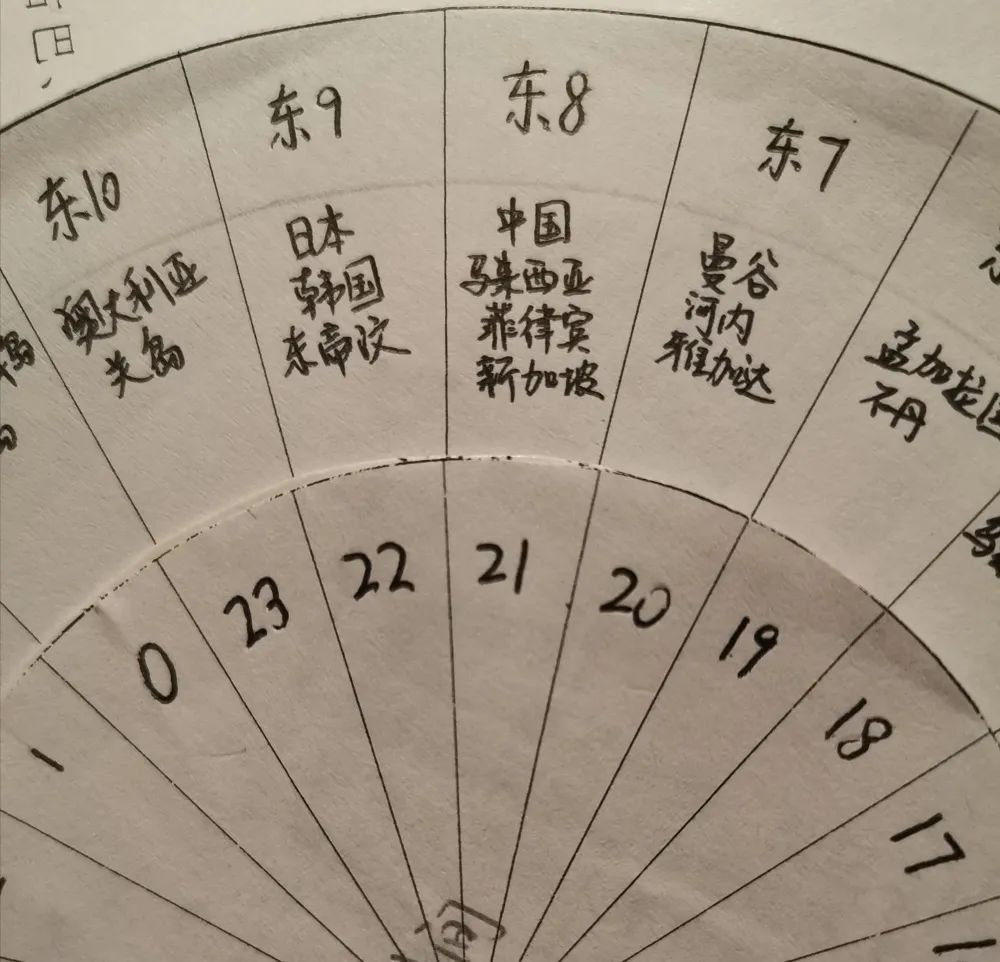 东10
澳大利亚
关岛
东9
日本
韩国
东帝汶
东8
中国
马来西亚
菲律宾
新加坡
东7
曼谷
河内
雅加达
孟加龙国
不丹
1
0
23
22
21
20
19
18
17